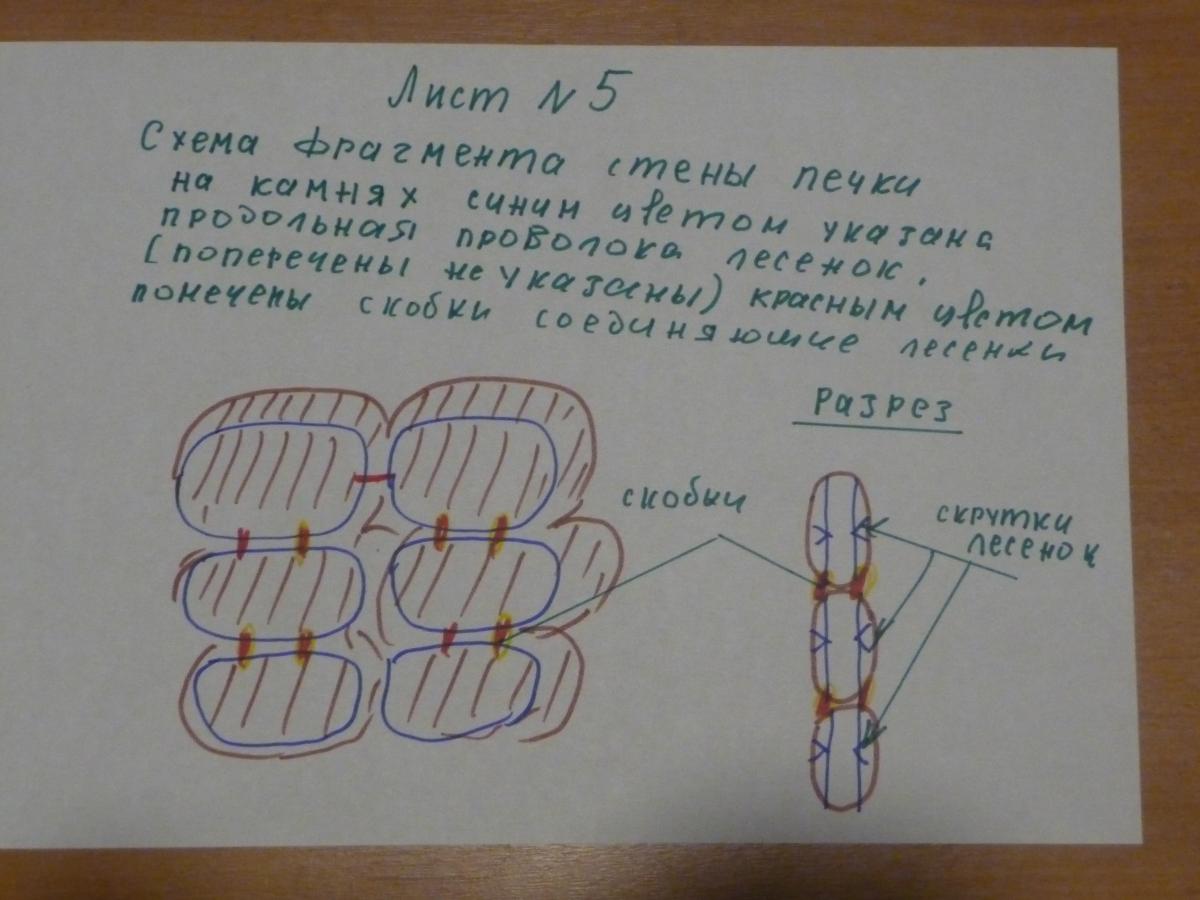 Лист N 5
Схема фрагмента стены печки
на камнях синим цветом указана
продольная проволока лесенок.
(поперечены не указаны) красным цветом
помечены скобки соединяющие лесенки
Разрез
скобки
скрутки
лесенок